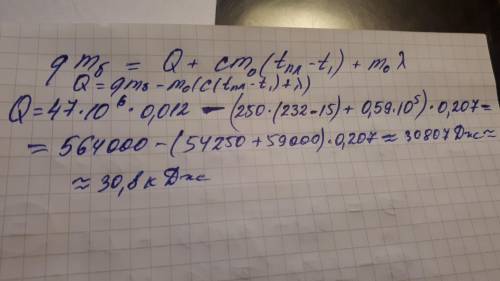 q m_б = Q + cm₀(t_пл - t₁) + m₀ λ
Q = qm_б - m₀(c(t_пл - t₁) + λ)
Q = 47·10⁶·0,012 - (250·(232-15) + 0,59·10⁵)·0,207 =
= 564000 - (54250 + 59000)·0,207 ≈ 30807 Дж ≈
≈ 30,8 кДж